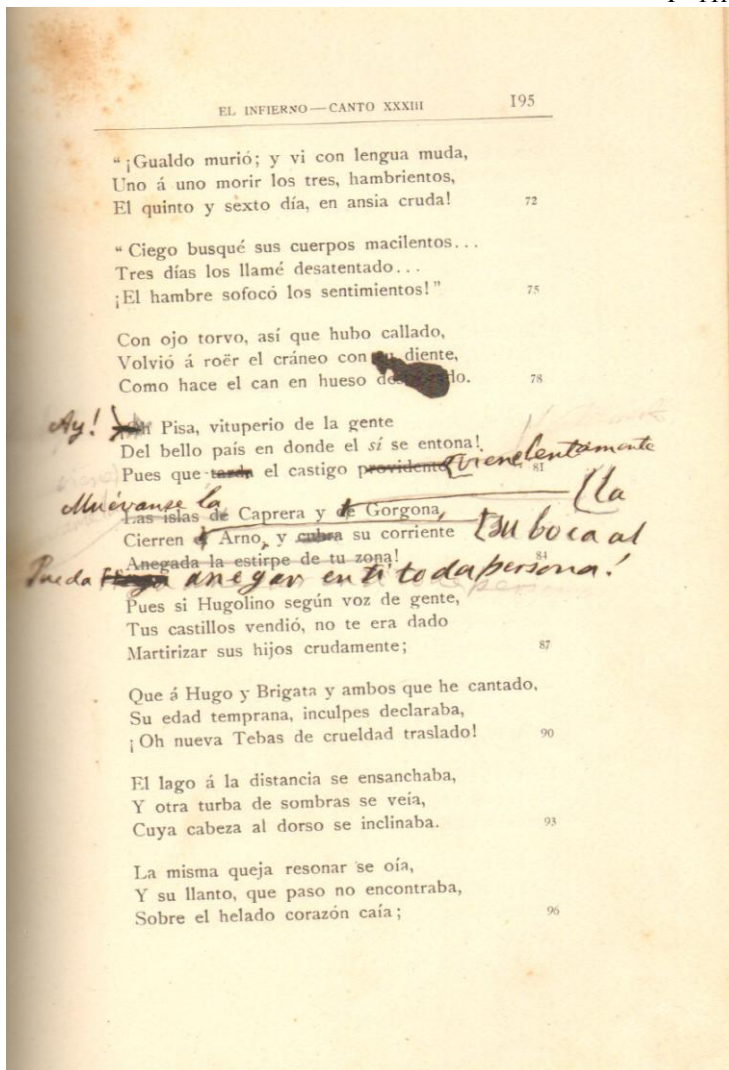 EL INFIERNO — CANTO XXXIII 195
“¡Gualdo murió; y vi con lengua muda,
Uno á uno morir los tres, hambrientos,
El quinto y sexto día, en ansia cruda! 72
“Ciego busqué sus cuerpos macilentos...
Tres días los llamé desatentado...
¡El hambre sofocó los sentimientos!” 75
Con ojo torvo, así que hubo callado,
Volvió á roër el cráneo con diente,
Como hace el can en hueso 78
Ay! Pisa, vituperio de la gente
Del bello país en donde el sí se entona!
Pues que tarda el castigo providente viene lentamente 81
Muévanse la (la
Las islas de Caprera y de Gorgona,
Cierren Arno, y cubra su corriente (su boca al
Anegada la estirpe de tu zona! 84
Pueda anegar en ti toda persona!
Pues si Hugolino según voz de gente,
Tus castillos vendió, no te era dado
Martirizar sus hijos crudamente; 87
Que á Hugo y Brigata y ambos que he cantado,
Su edad temprana, inculpes declaraba,
¡Oh nueva Tebas de crueldad traslado! 90
El lago á la distancia se ensanchaba,
Y otra turba de sombras se veía,
Cuya cabeza al dorso se inclinaba. 93
La misma queja resonar se oía,
Y su llanto, que paso no encontraba,
Sobre el helado corazón caía; 96